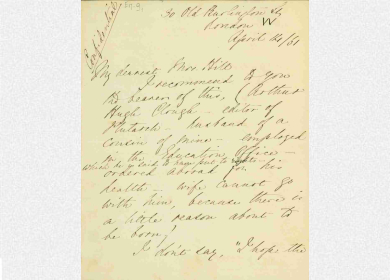 Confidential
30 Old Burlington St
London W
April 14/61
My dearest Mrs Hill
I recommend to you
the bearer of this, (Arthur
Hugh Clough - editor of
Plutarch - husband of a
cousin of mine - employed
in the Education Office -
ordered abroad for his
health - wife cannot go
with him, because there is
a little reason about to
be born)
I don't say, "I hope the